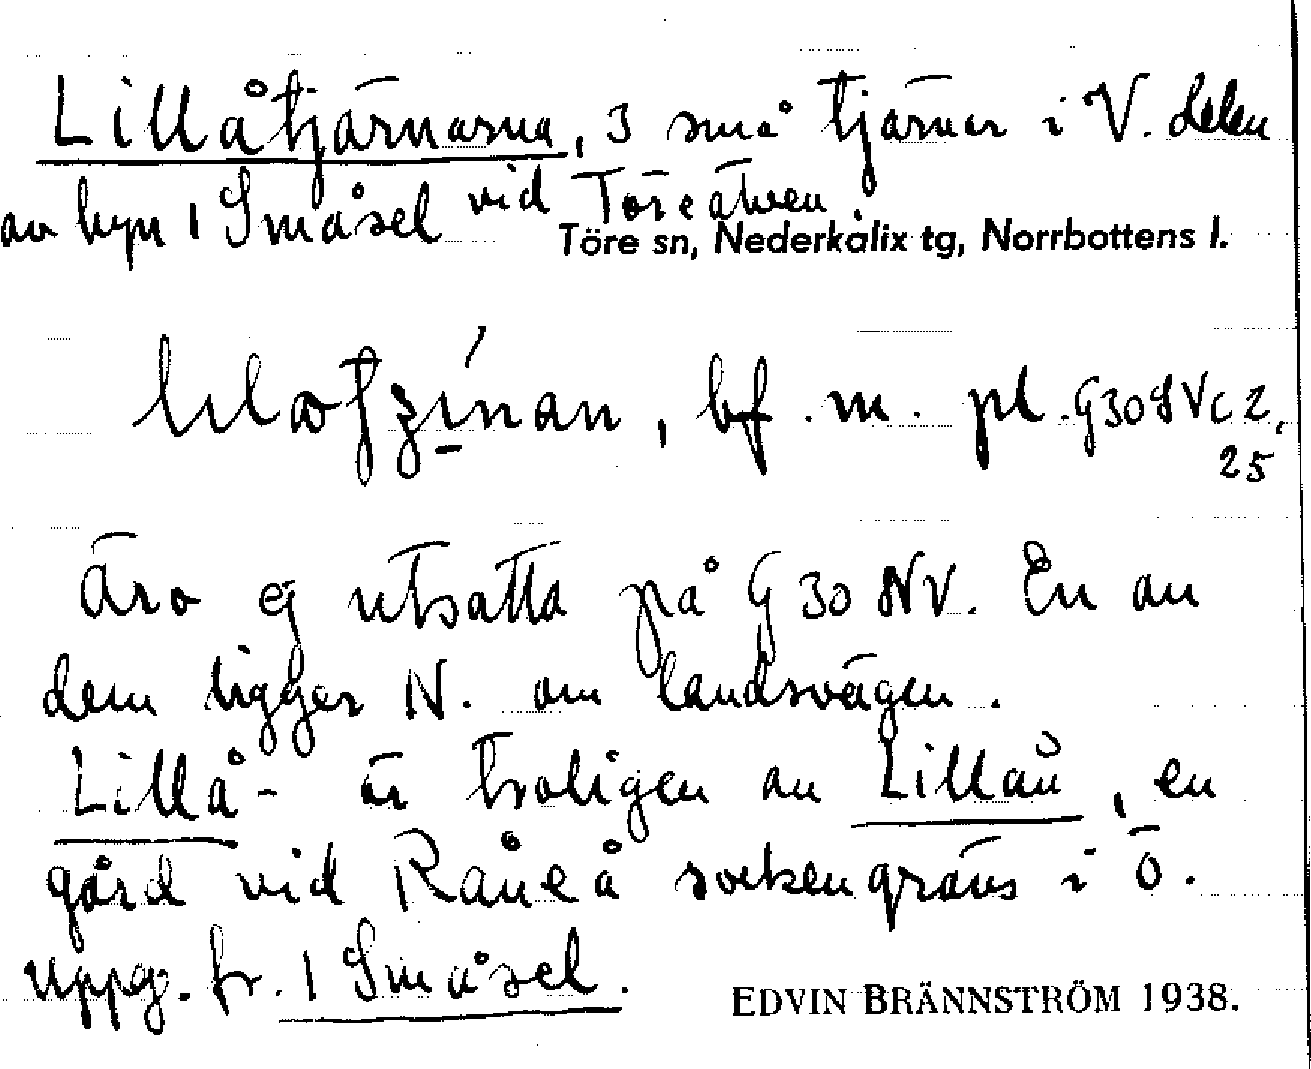 Lillåtjärnarna, 3 små tjärnar i V. delen
av byn 1 Småsel vid Töreälven
Töre sn, Nederkalix tg, Norrbottens l.
bf. m. pl. G30SVc2,
25
Äro ej utsatta på G 30 NV. En av
dem ligger N. om landsvägen.
Lillå- är troligen av Lillån, en
gård vid Råneå sockengräns i Ö.
uppg. fr. 1 Småsel.
EDVIN BRÄNNSTRÖM 1938.